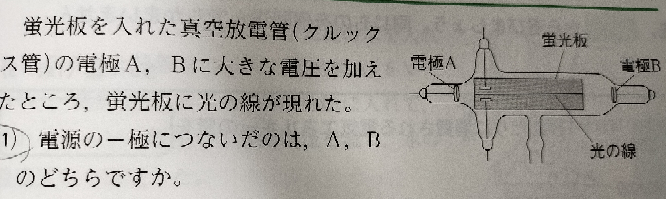 蛍光板を入れた真空放電管(クルック
ス管)の電極A，Bに大きな電圧を加え
たところ，蛍光板に光の線が現れた。
1) 電源の－極につないだのは，A，B
のどちらですか。
電極A
蛍光板
電極B
光の線